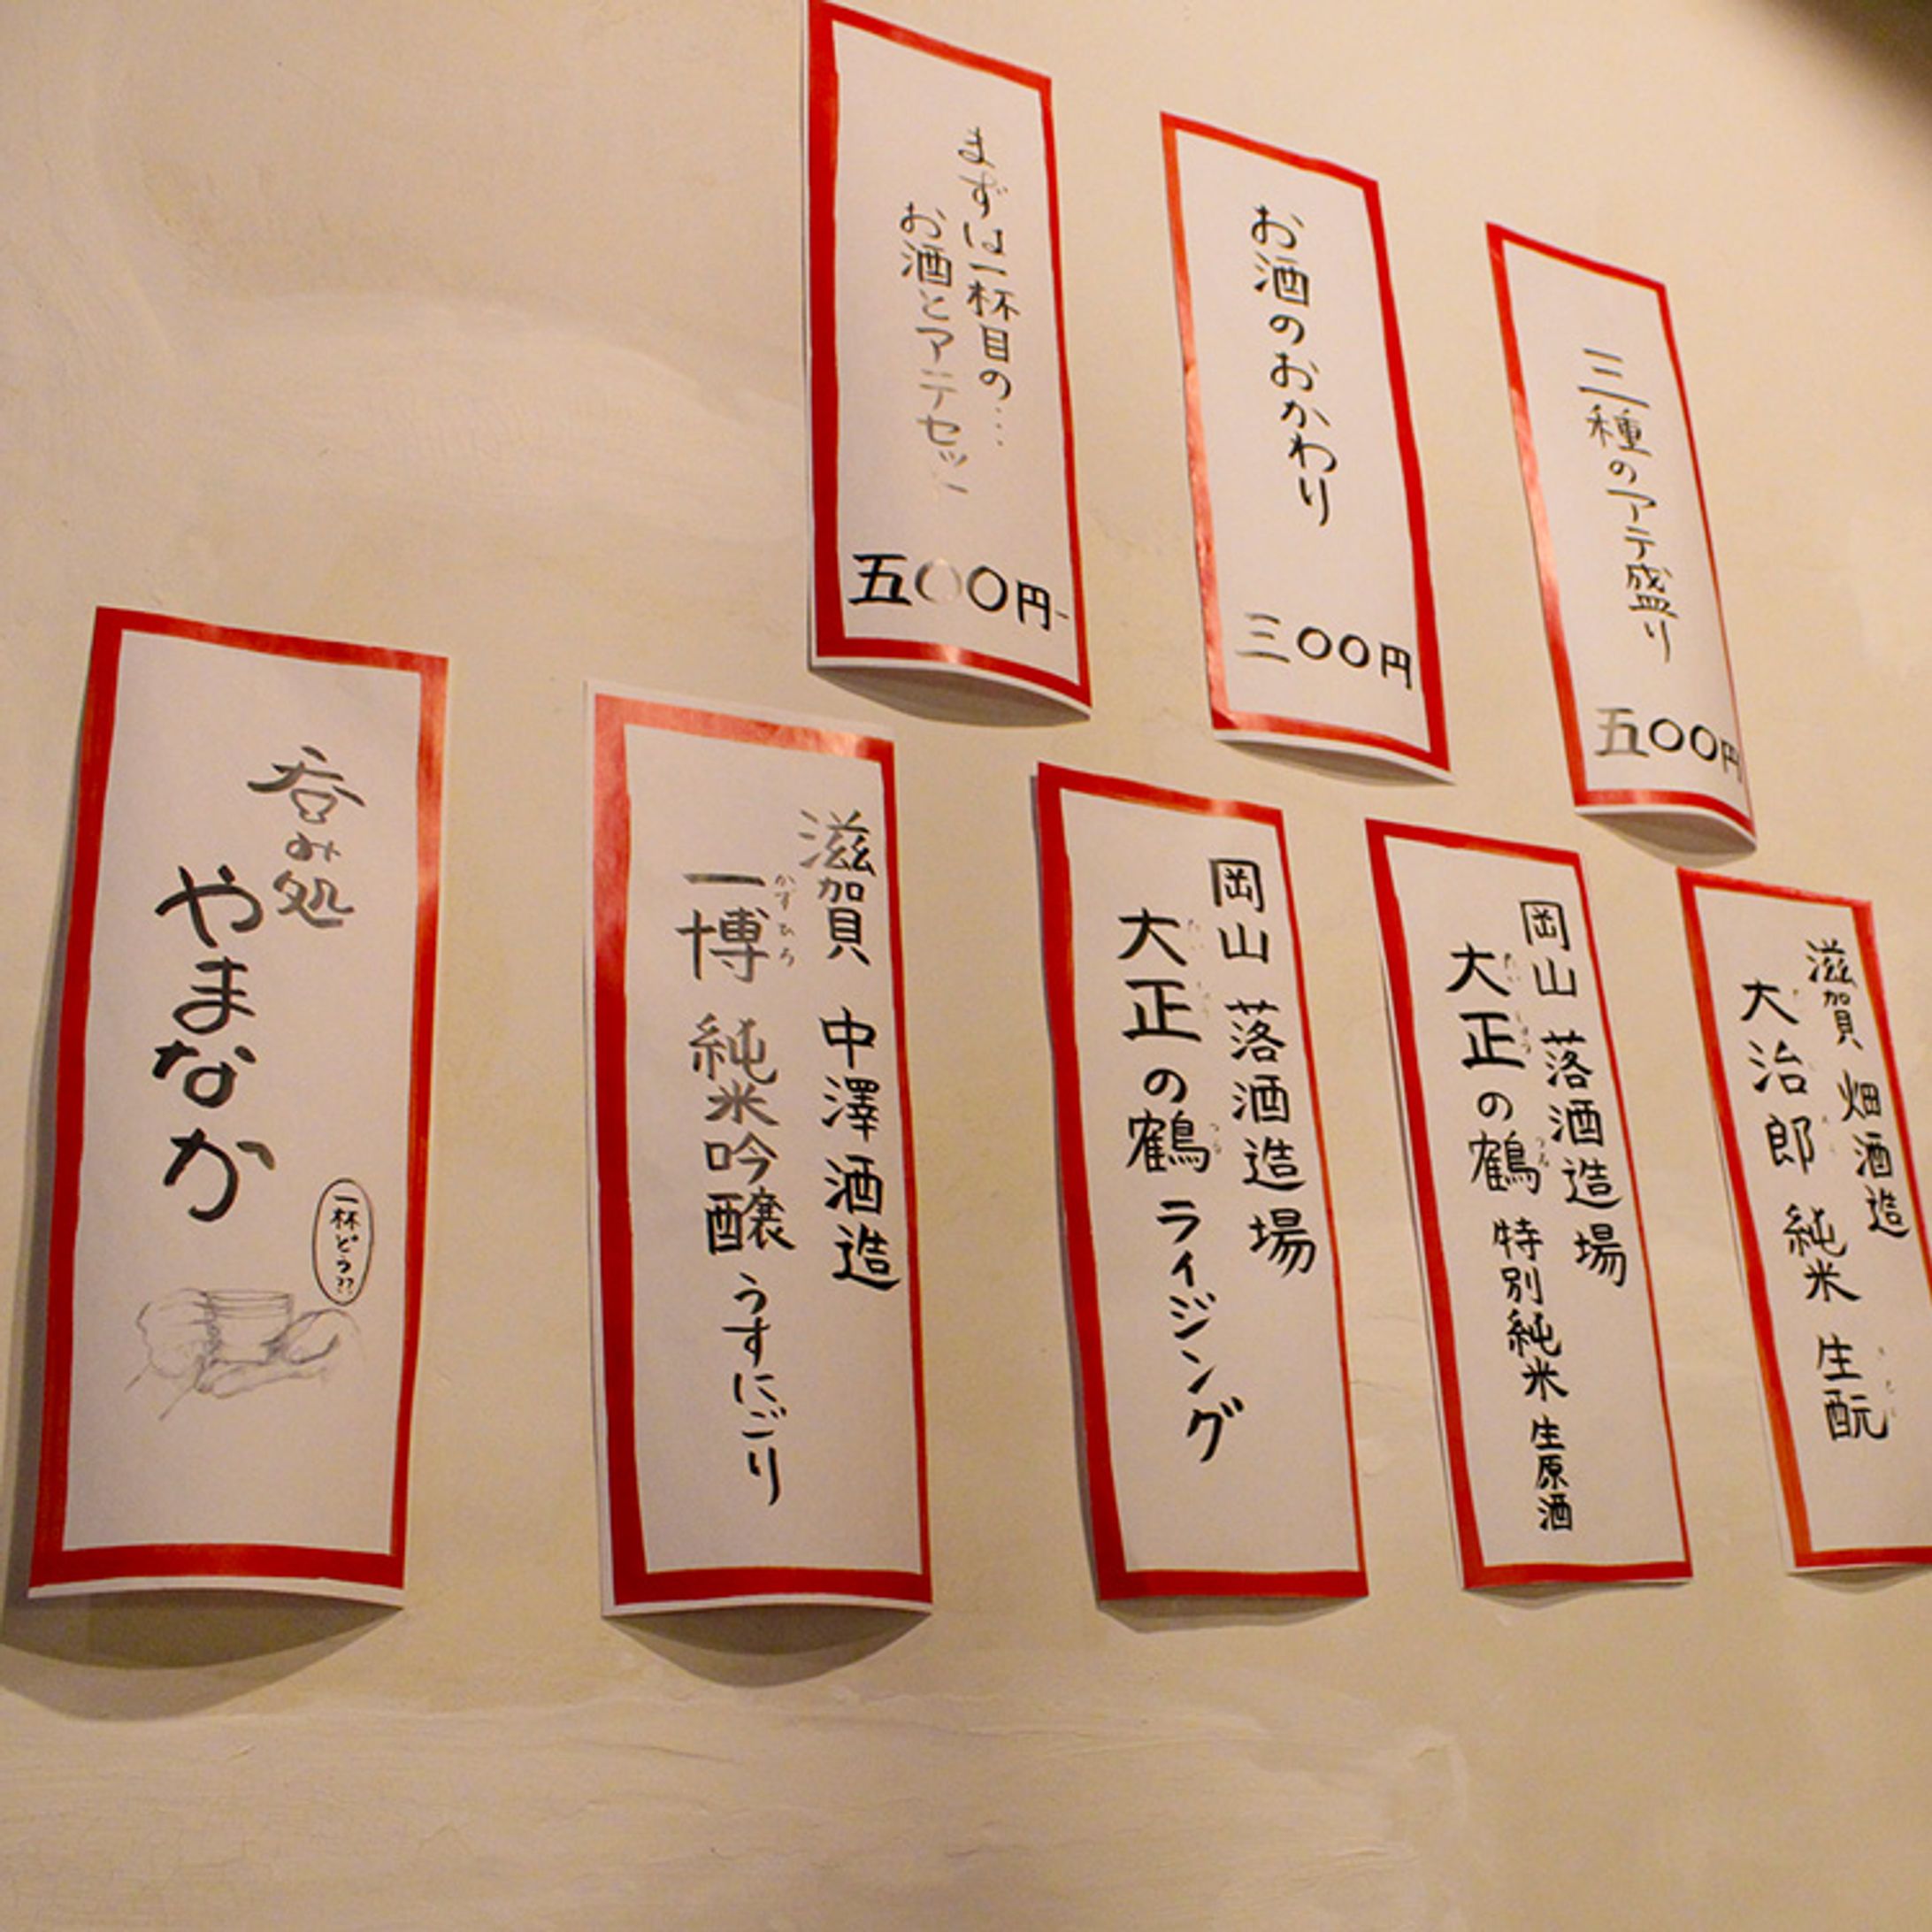 まずは一杯目の…
お酒とアテセット
五〇〇円
お酒のおかわり
三〇〇円
三種のアテ盛り
五〇〇円
呑み処
やまなか
一杯どう??
滋賀 中澤酒造
一博 純米吟醸 うすにごり
かずひろ
岡山 落酒造場
大正の鶴 ライジング
岡山 落酒造場
大正の鶴 特別純米 生原酒
滋賀 畑酒造
大治郎 純米 生酛